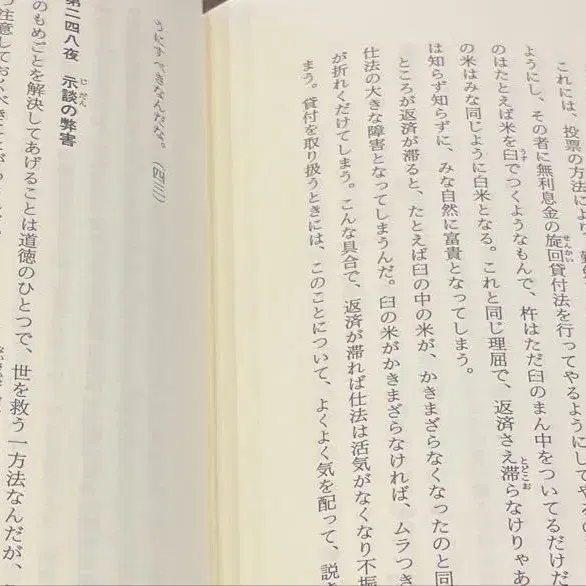 これには、投票の方法により、
ようにし、その者に無利息金の旋回貸付法を行ってやるようにしてや
のはたとえば米を臼でつくようなもんで、杵はただ臼のまん中をついてるだけだ
の米はみな同じように白米となる。これと同じ理屈で、返済さえ滞らなけりゃあ
は知らず知らずに、みな自然に富貴となってしまう。
ところが返済が滞ると、たとえば臼の中の米が、かきまざらなくなったのと同
仕法の大きな障害となってしまうんだ。臼の米がかきまざらなければ、ムラつき
が折れくだけてしまう。こんな具合で、返済が滞れば仕法は活気がなくなり不振
まう。貸付を取り扱うときには、このことについて、よくよく気を配って、説
うにすべきなんだな。(四三)
第二四八夜 示談の弊害
のもめごとを解決してあげることは道徳のひとつで、世を救う一方法なんだが、
注意しておくべきことが